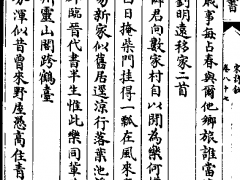 歲事每占春與爾他鄉旅誰當
劉明遠移家二首
君向數家村自以閒為樂何
白日掩柴門挂得一瓢在風來
易新家似舊居還涼行落業池
師臨晉代書半生惟此樂同軰
州靈山閣跨鶴臺
渾似昔曾來野屋懸高住青